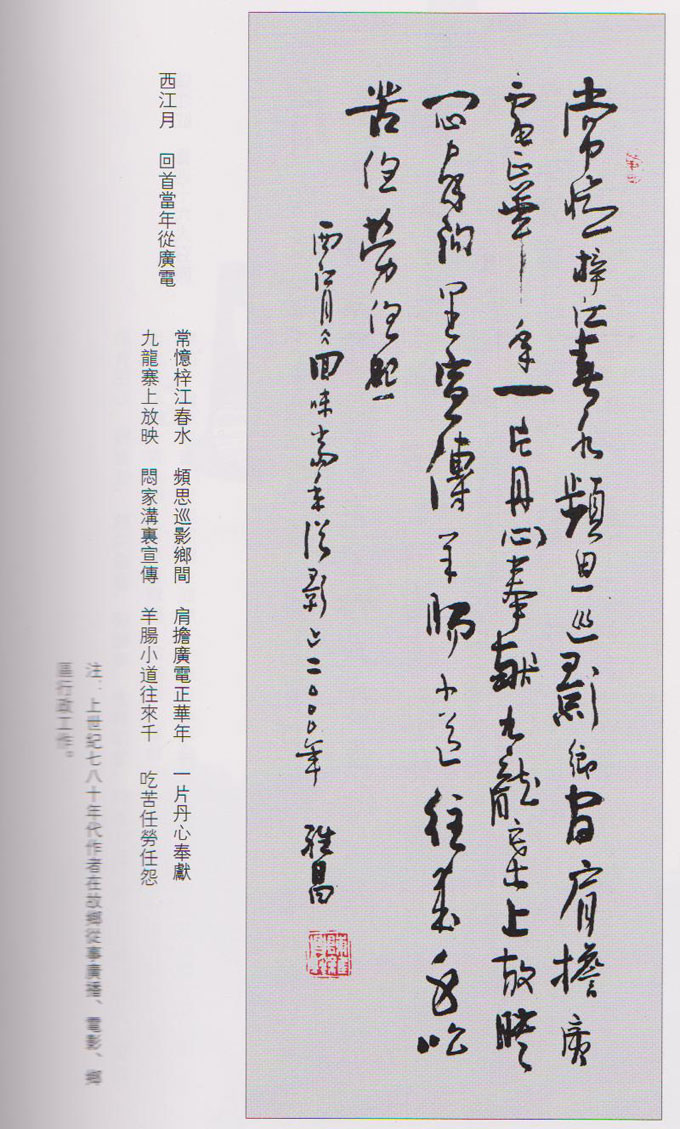 常憶梓江春水頻思巡影鄉間肩擔廣
電正華年一片丹心奉獻九龍寨上放映
悶家溝里宣傳羊腸小道往來千吃
苦任勞任怨
西江月 回味當年從影 二〇〇〇年 雅昌
西江月 回首當年從廣電
常憶梓江春水 頻思巡影鄉間 肩擔廣電正華年 一片丹心奉獻
九龍寨上放映 悶家溝裏宣傳 羊腸小道往來千 吃苦任勞任怨
注：上世紀七八十年代作者在故鄉從事廣播、電影、鄉
區行政工作。